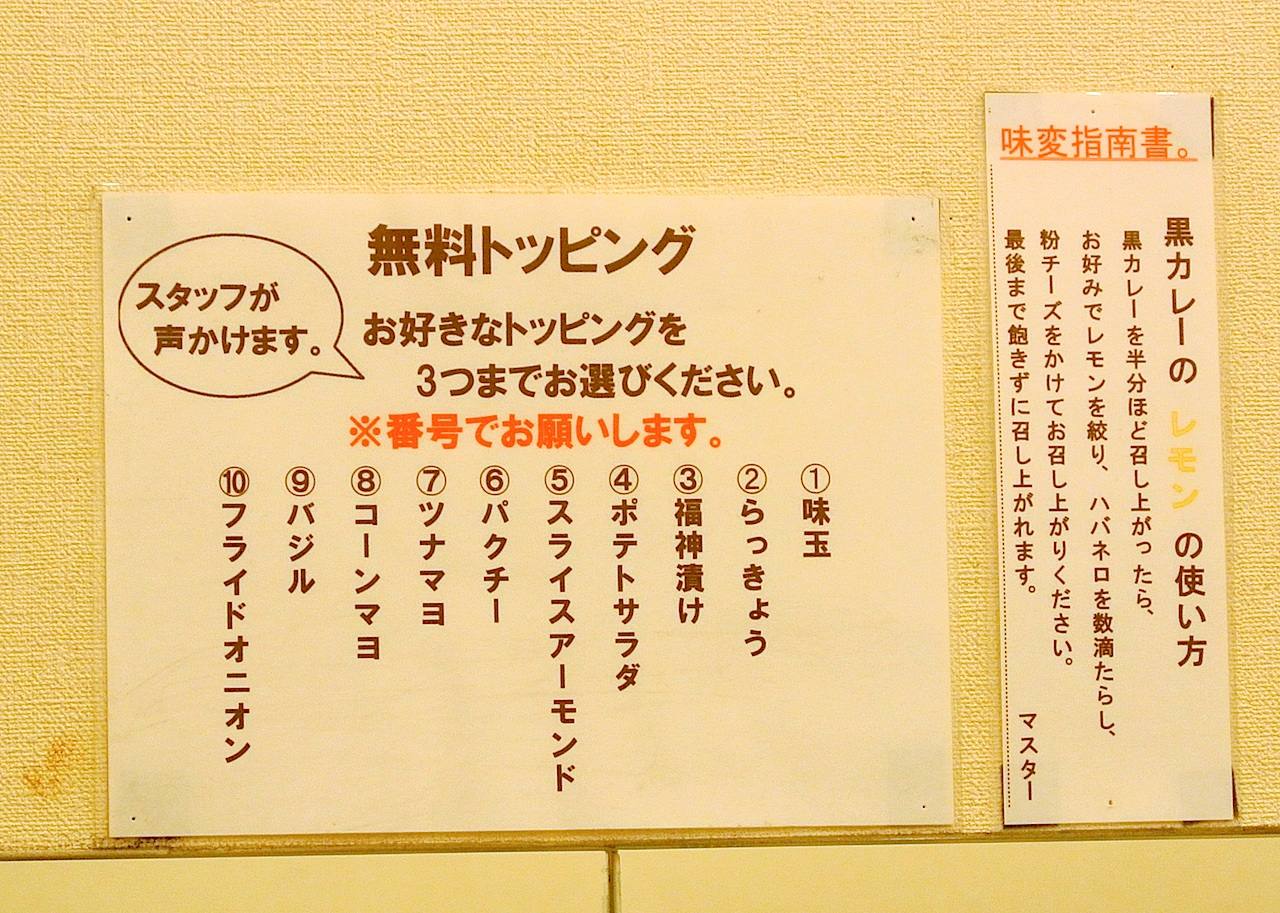 無料トッピング
スタッフが
声かけます。
お好きなトッピングを
3つまでお選びください。
※番号でお願いします。
①味玉
②らっきょう
③福神漬け
④ポテトサラダ
⑤スライスアーモンド
⑥パクチー
⑦ツナマヨ
⑧コーンマヨ
⑨バジル
⑩フライドオニオン
味変指南書。
黒カレーの レモン の使い方
黒カレーを半分ほど召し上がったら、
お好みでレモンを絞り、ハバネロを数滴たらし、
粉チーズをかけてお召し上がりください。
最後まで飽きずに召し上がれます。
マスター